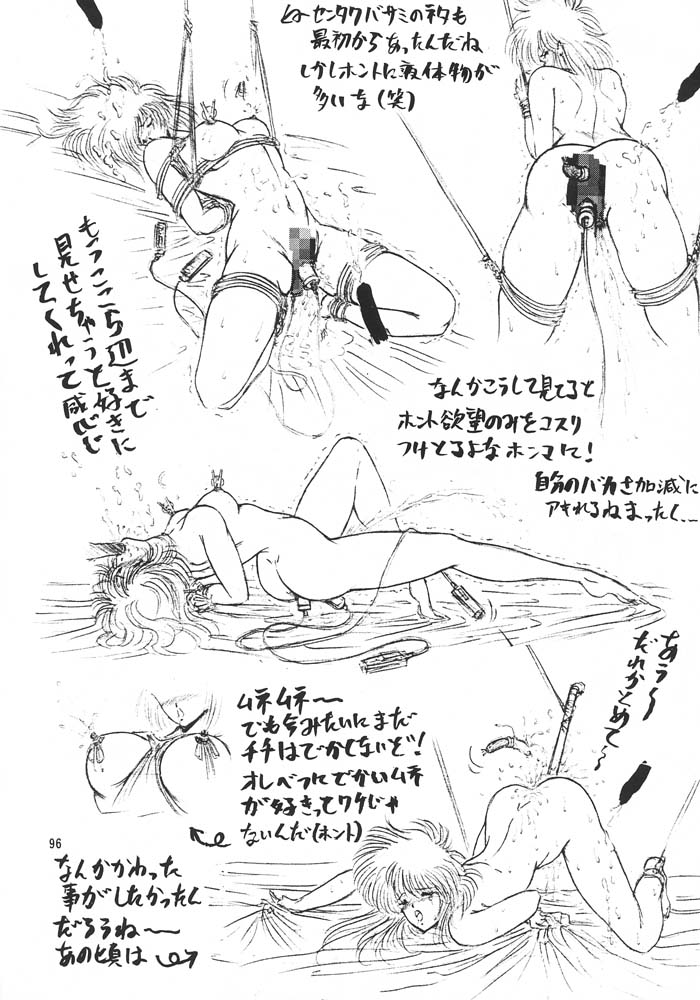 センタクバサミのネタも
最初からあったんだね
しかしホントに液体物が
多いな(笑)
もうここら辺まで
見せちゃうと好きに
してくれって感じ
なんかこうして見てると
ホント欲望のみをコスリ
つけとるよなホンマに!
自分のバカさ加減に
アキれるねまったく…
あう〜
だれかとめて〜
ムネムネ〜
でも今みたいにまだ
チチはでかくないぞ!
オレべつにでかいムネ
が好きってワケじゃ
ないんだ(ホント)
96
なんかかわった
事がしたかったん
だろうね〜
あの頃は